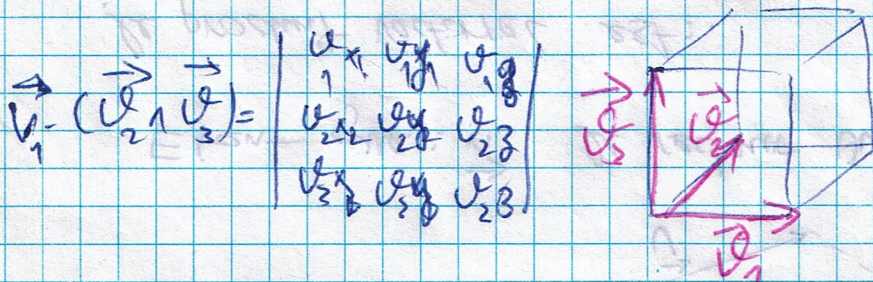 v⃗₁·(v⃗₂∧v⃗₃)= | v₁x v₁y v₁z |
| v₂x v₂y v₂z |
| v₃x v₃y v₂z |
v⃗₃ v⃗₂
v⃗₁